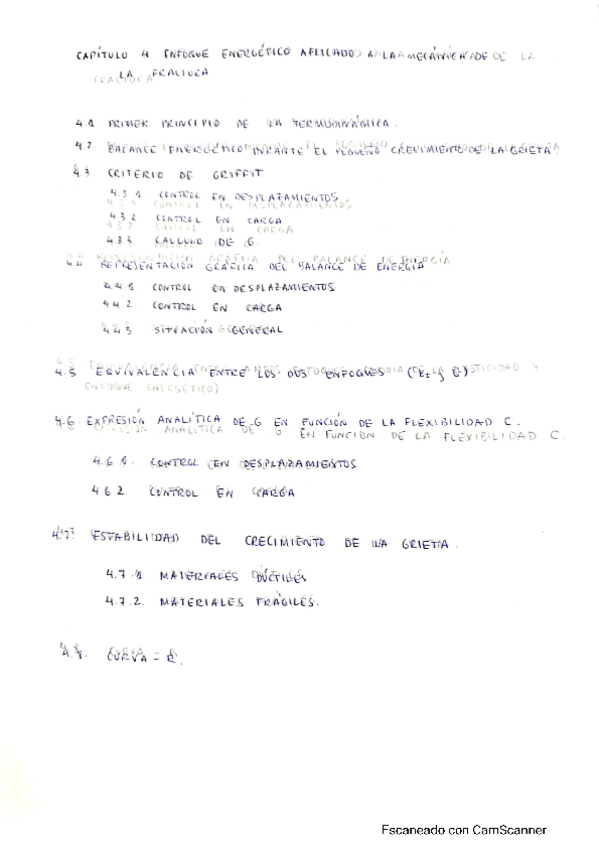 CAPÍTULO 4. ENFOQUE ENERGÉTICO APLICADO A LA MECÁNICA DE
LA FRACTURA
4.1 PRIMER PRINCIPIO DE LA TERMODINÁMICA.
4.2 BALANCE ENERGÉTICO DURANTE EL PEQUEÑO CRECIMIENTO DE LA GRIETA
4.3 CRITERIO DE GRIFFIT
4.3.1 CONTROL EN DESPLAZAMIENTOS
4.3.2 CONTROL EN CARGA
4.3.3 CALCULO DE G
4.4 REPRESENTACIÓN GRÁFICA DEL BALANCE DE ENERGÍA
4.4.1 CONTROL EN DESPLAZAMIENTOS
4.4.2 CONTROL EN CARGA
4.4.3 SITUACIÓN GENERAL
4.5 EQUIVALENCIA ENTRE LOS DOS ENFOQUES (KI y G)
ENFOQUE ENERGÉTICO)
4.6. EXPRESIÓN ANALÍTICA DE G EN FUNCIÓN DE LA FLEXIBILIDAD C.
4.6.1. CONTROL EN DESPLAZAMIENTOS
4.6.2. CONTROL EN CARGA
4.7 ESTABILIDAD DEL CRECIMIENTO DE LA GRIETA.
4.7.1 MATERIALES DÚCTILES
4.7.2. MATERIALES FRÁGILES.
4.8. CURVA-R.
Escaneado con CamScanner